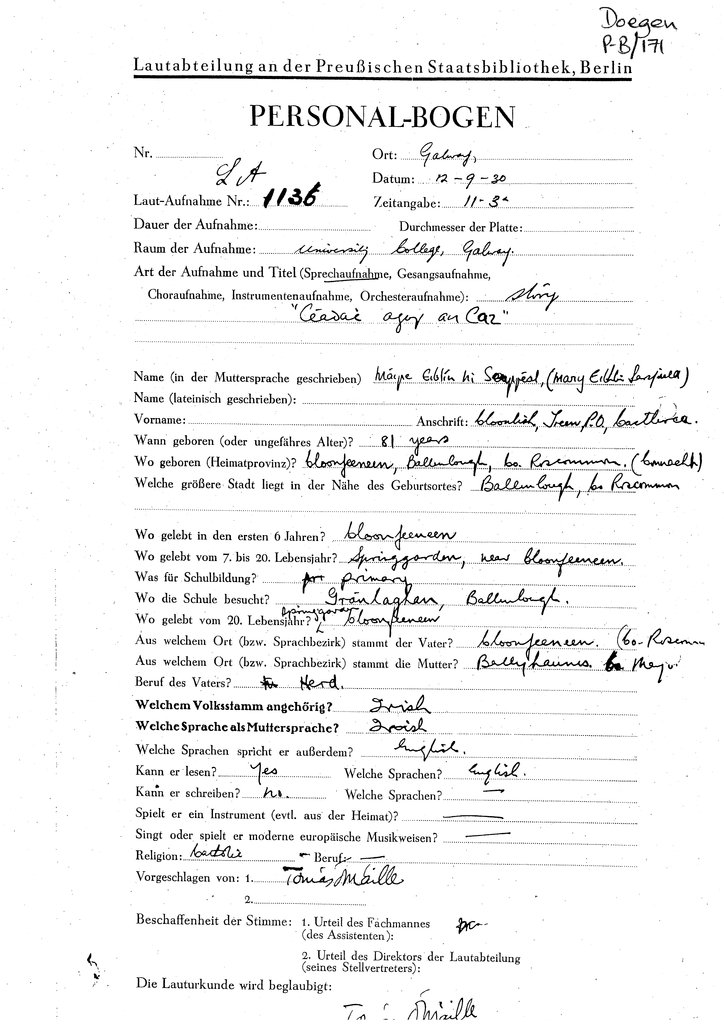 Doegen
P-B/171
Lautabteilung an der Preußischen Staatsbibliothek, Berlin
PERSONAL-BOGEN
Nr. Ort: Galway,
LA Datum: 12-9-30
Laut-Aufnahme Nr.: 1136 Zeitangabe: 11-3
Dauer der Aufnahme: Durchmesser der Platte:
Raum der Aufnahme: University College, Galway.
Art der Aufnahme und Titel (Sprechaufnahme, Gesangsaufnahme,
Choraufnahme, Instrumentenaufnahme, Orchesteraufnahme): story
"Céadaċ agus an Cat"
Name (in der Muttersprache geschrieben) Máire Eiblín Ní (Mary Eiblin
Name (lateinisch geschrieben):
Vorname: Anschrift: P.O, Castlerea.
Wann geboren (oder ungefähres Alter)? 81 years
Wo geboren (Heimatprovinz)? Cloonfeeneen, Ballinlough, Co. Roscommon. (Connacht)
Welche größere Stadt liegt in der Nähe des Geburtsortes? Ballinlough, Co Roscommon
Wo gelebt in den ersten 6 Jahren? Cloonfeeneen
Wo gelebt vom 7. bis 20. Lebensjahr? Springgarden, near Cloonfeeneen.
Was für Schulbildung? primary
Wo die Schule besucht? Gránlaghan, Ballinlough.
Wo gelebt vom 20. Lebensjahr? Springgarden Cloonfeeneen
Aus welchem Ort (bzw. Sprachbezirk) stammt der Vater? Cloonfeeneen. (Co. Roscomm
Aus welchem Ort (bzw. Sprachbezirk) stammt die Mutter? Ballyhaunis Co Mayo
Beruf des Vaters? Herd.
Welchem Volksstamm angehörig? Irish
Welche Sprache als Muttersprache? Irish
Welche Sprachen spricht er außerdem? English.
Kann er lesen? Yes Welche Sprachen? English.
Kann er schreiben? no. Welche Sprachen? —
Spielt er ein Instrument (evtl. aus der Heimat)? —
Singt oder spielt er moderne europäische Musikweisen? —
Religion: Catholic — Beruf: —
Vorgeschlagen von: 1. Tomás Ó Máille
2.
Beschaffenheit der Stimme: 1. Urteil des Fachmannes
(des Assistenten):
2. Urteil des Direktors der Lautabteilung
(seines Stellvertreters):
Die Lauturkunde wird beglaubigt:
Tomás Ó Máille